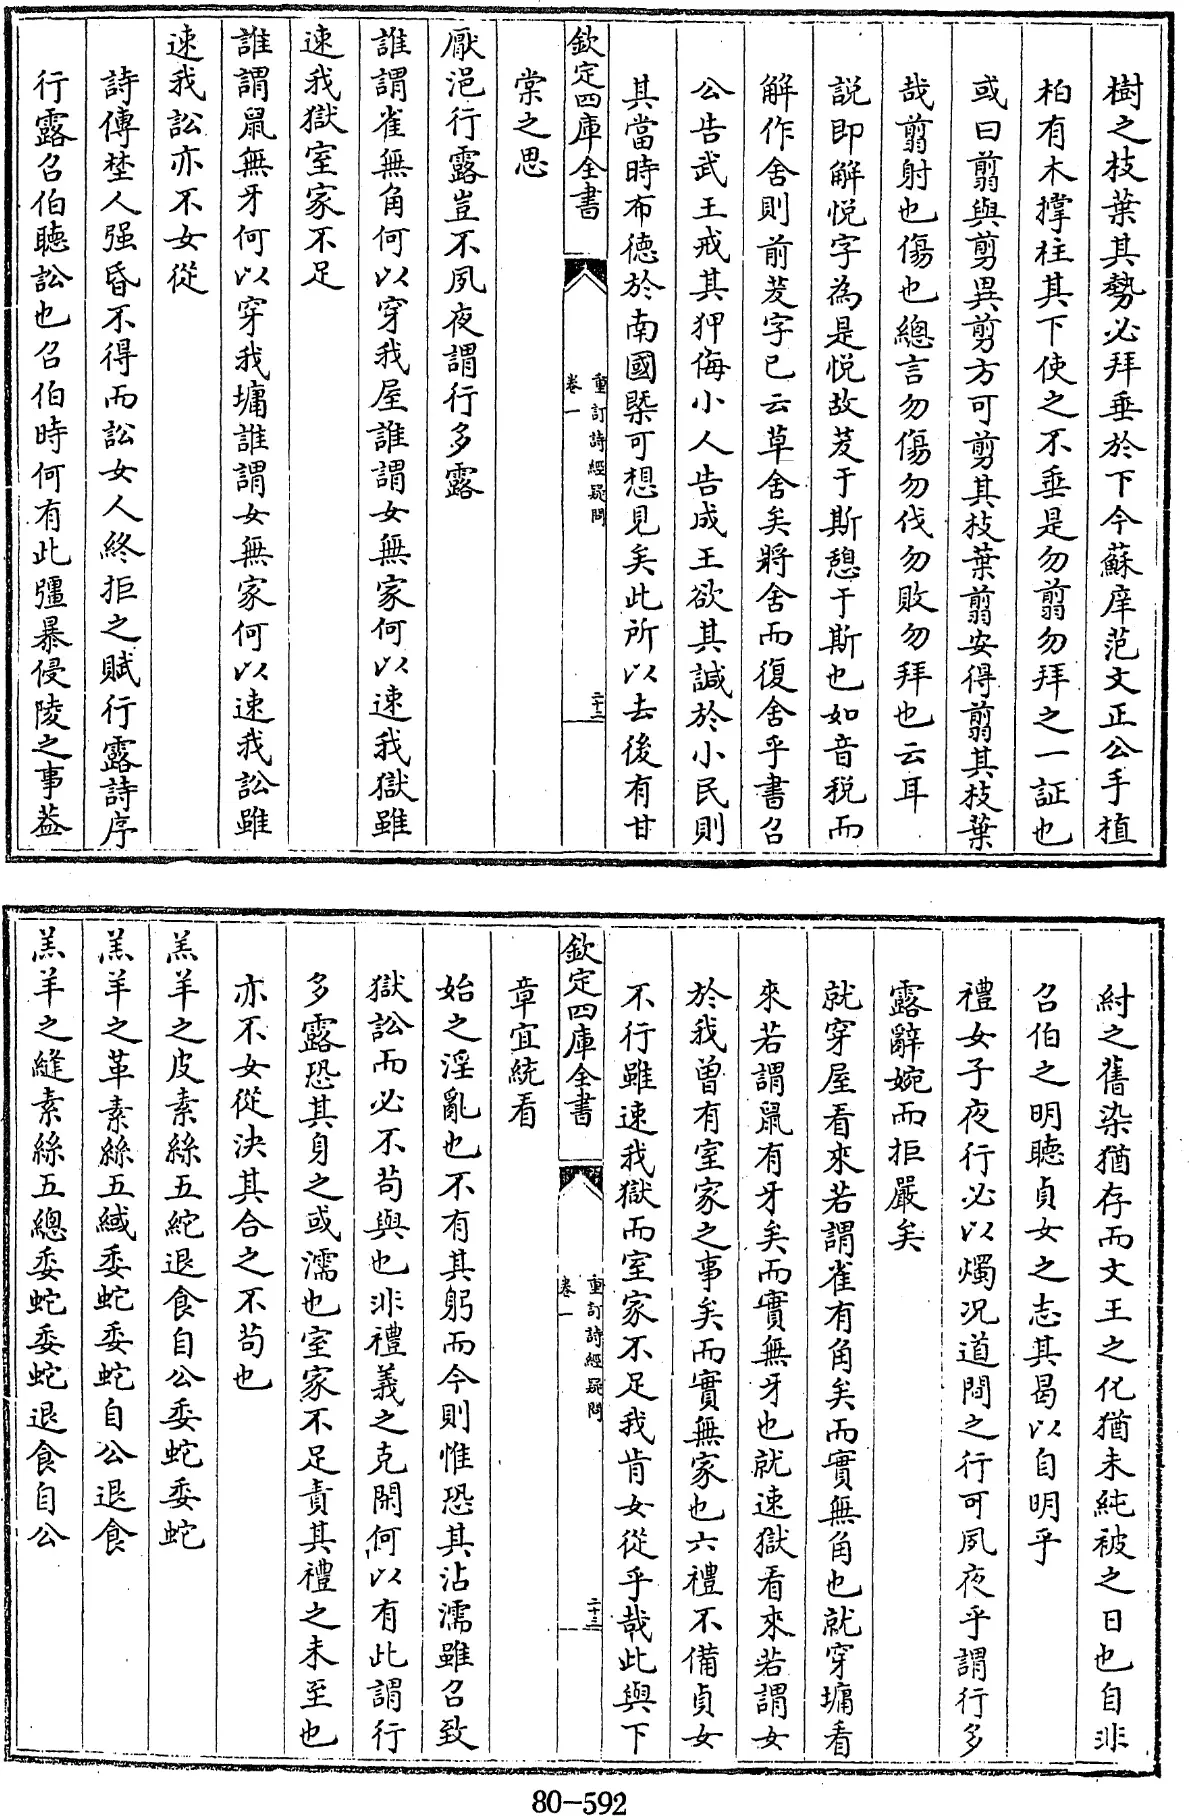 樹之枝葉其勢必拜垂於下今蘇庠范文正公手植
柏有木撑柱其下使之不垂是勿翦勿拜之一証也
或曰翦與剪異剪方可剪其枝葉翦安得翦其枝葉
哉翦射也傷也總言勿傷勿伐勿敗勿拜也云耳
説即解悦字為是悦故茇于斯憩于斯也如音税而
解作舍則前茇字已云草舍矣將舍而復舍乎書召
公告武王戒其狎侮小人告成王欲其諴於小民則
其當時布德於南國槩可想見矣此所以去後有甘
欽定四庫全書
重訂詩經疑問
卷一
二十二
棠之思
厭浥行露豈不夙夜謂行多露
誰謂雀無角何以穿我屋誰謂女無家何以速我獄雖
速我獄室家不足
誰謂鼠無牙何以穿我墉誰謂女無家何以速我訟雖
速我訟亦不女從
詩傳埜人强昏不得而訟女人終拒之賦行露詩序
行露召伯聽訟也召伯時何有此彊暴侵陵之事葢
紂之舊染猶存而文王之化猶未純被之日也自非
召伯之明聽貞女之志其曷以自明乎
禮女子夜行必以燭况道間之行可夙夜乎謂行多
露辭婉而拒嚴矣
就穿屋看來若謂雀有角矣而實無角也就穿墉看
來若謂鼠有牙矣而實無牙也就速獄看來若謂女
於我曾有室家之事矣而實無家也六禮不備貞女
不行雖速我獄而室家不足我肯女從乎哉此與下
欽定四庫全書
重訂詩經疑問
卷一
二十三
章宜統看
始之淫亂也不有其躬而今則惟恐其沾濡雖召致
獄訟而必不苟與也非禮義之克閑何以有此謂行
多露恐其身之或濡也室家不足責其禮之未至也
亦不女從決其合之不苟也
羔羊之皮素絲五紽退食自公委蛇委蛇
羔羊之革素絲五緎委蛇委蛇自公退食
羔羊之縫素絲五總委蛇委蛇退食自公
80-592